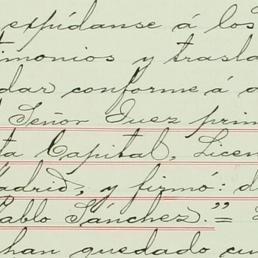 expídanse á los
timonios y trasla
dar conforme á
Señor Juez prim
ta Capital, Licen
adrid, y firmó: d
Pablo Sánchez."=
han quedado cum